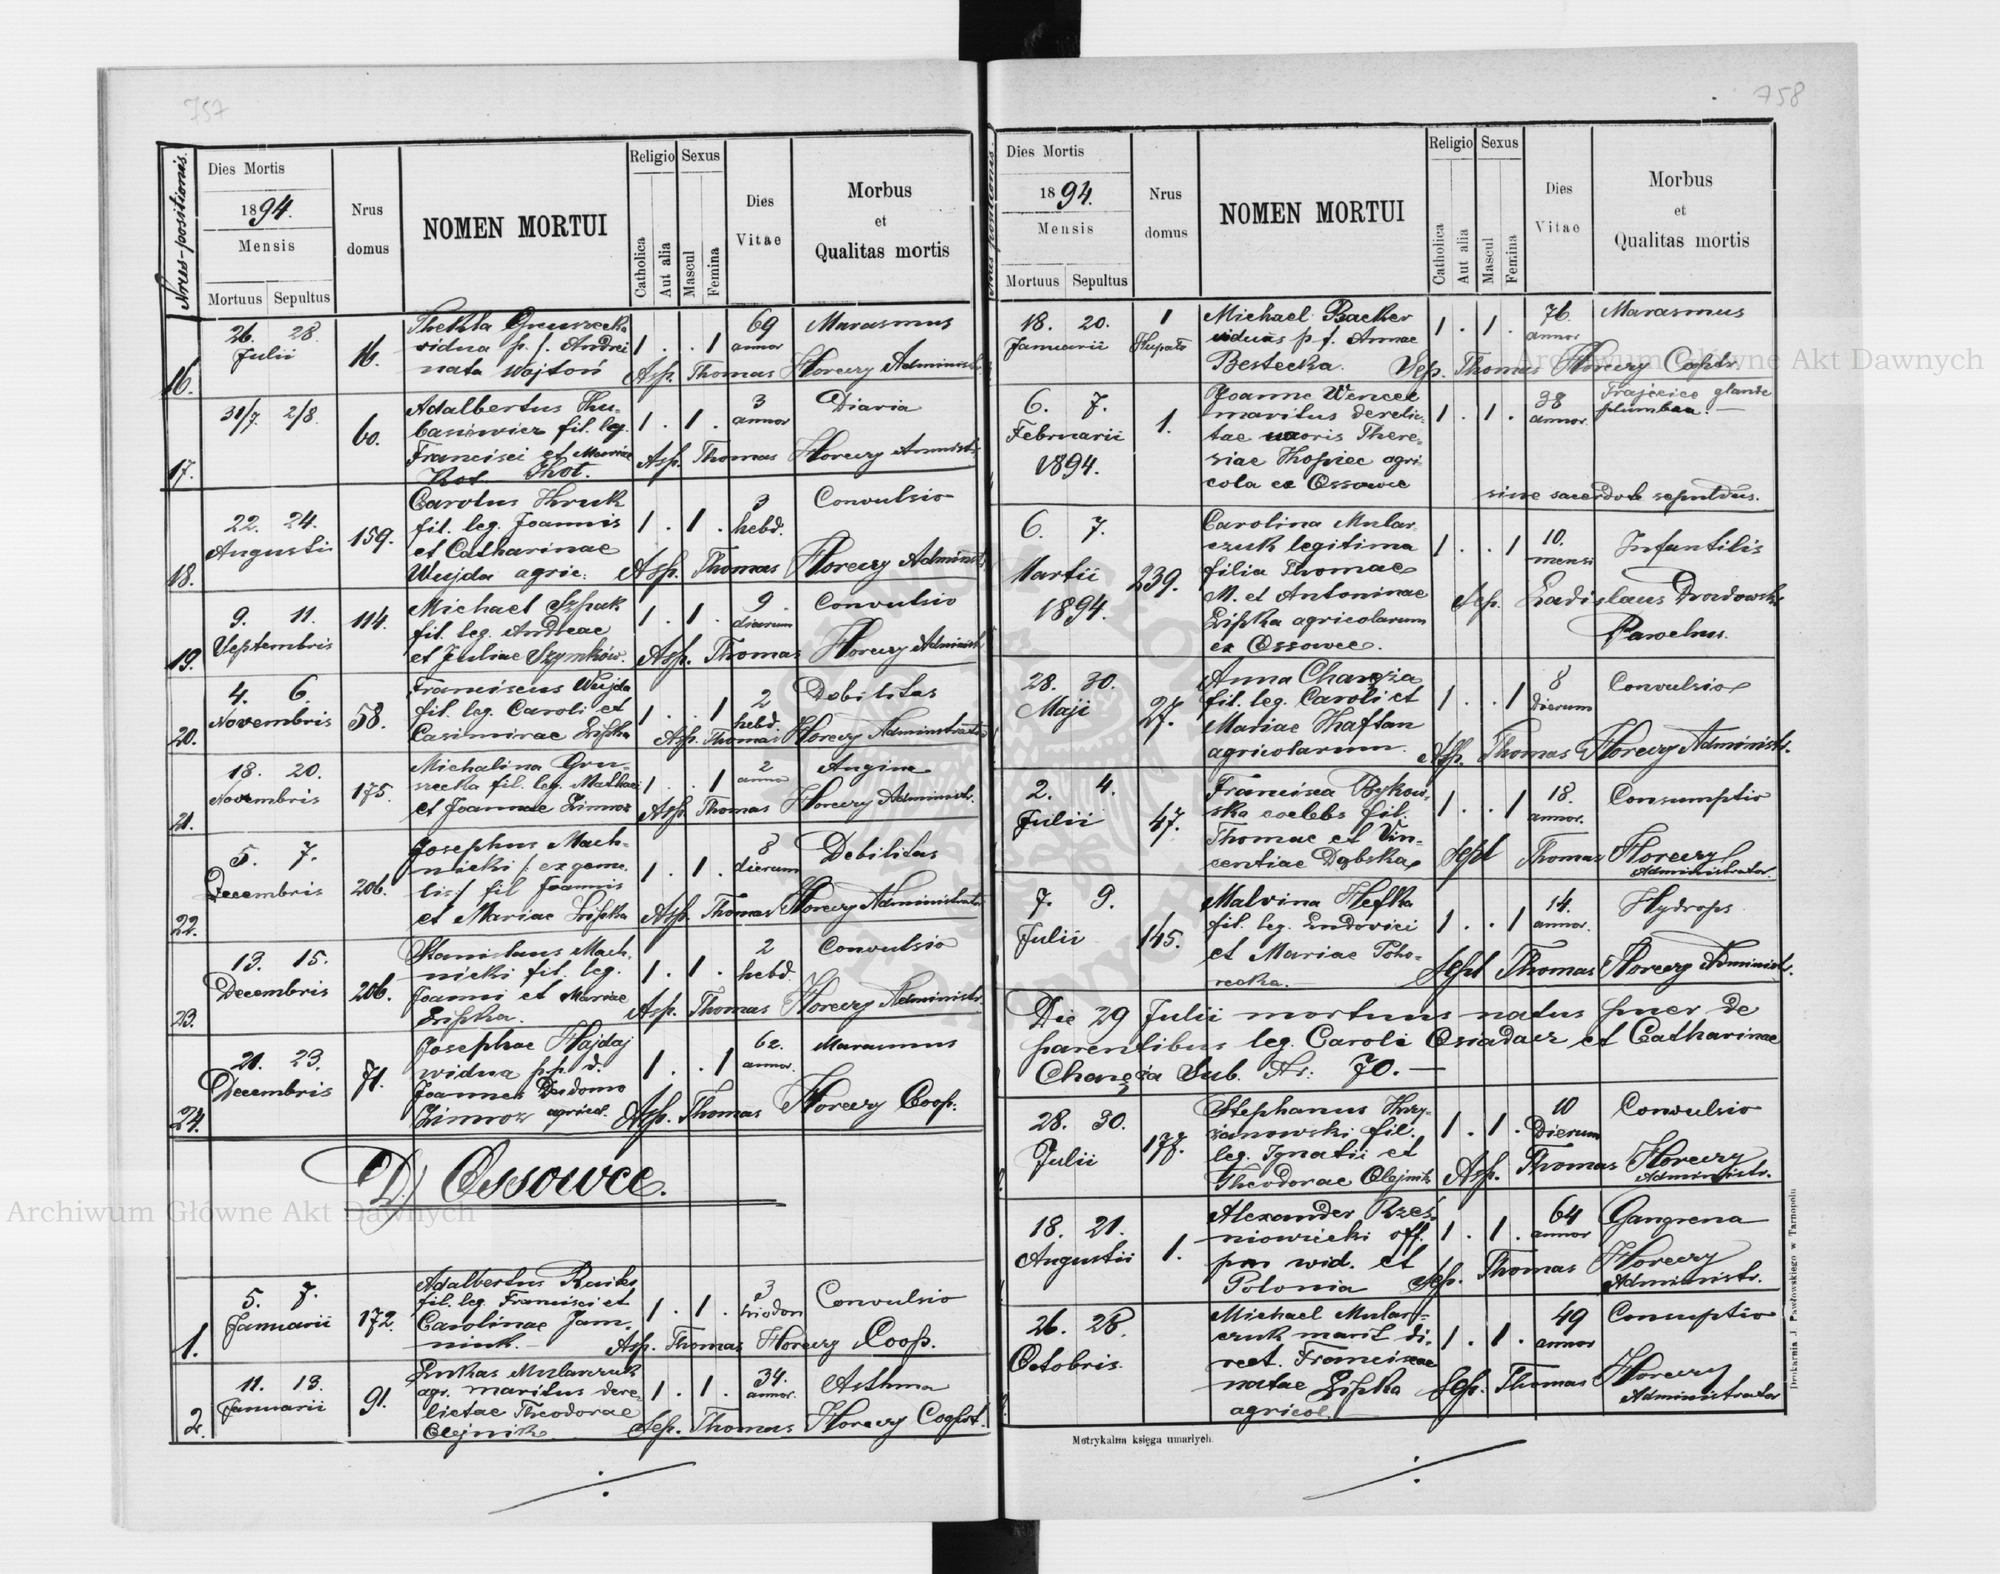 757
Nrus-positionis.
Dies Mortis
1894.
Mensis
Mortuus Sepultus
Nrus
domus
NOMEN MORTUI
Religio
Catholica
Aut alia
Sexus
Mascul
Femina
Dies
Vitae
Morbus
et
Qualitas mortis
16.
26. 28.
Julii
16.
Thekla Gruszecka
vidua p. f. Andrei
nata Wojtoń
1 . . 1
69
annor
Marasmus
Asp. Thomas Horeczy Administr.
17.
31/7 2/8
60.
Adalbertus
fil. leg.
Francisci et Mariae
1 . 1 .
3
annor
Diaria
Asp. Thomas Horeczy
18.
22. 24.
Augusti
159.
Carolus Hruk
fil. leg. Joannis
et Catharinae
Wujda agric:
1 . 1 .
3
hebd.
Convulsio
Asp. Thomas Horeczy Administr.
19.
9. 11.
Septembris
114.
Michael Szpak
fil. leg. Andreae
et Juliae Szymków.
1 . 1 .
9.
dierum
Convulsio
Asp. Thomas Horeczy Administr
20.
4. 6.
Novembris
58.
Franciscus Wujda
fil. leg. Caroli et
Casimirae Lipka
1 . . 1
2
hebd.
Debilitas
Asp. Thomas Horeczy Administrator
21.
18. 20.
Novembris
175.
Michalina Gru-
szecka fil. leg. Mathaei
et Joannae Zimroz
1 . . 1
2
anno
Angina
Asp. Thomas Horeczy Administr.
22.
5. 7.
Decembris
206.
Josephus Mach-
nicki /: ex geme-
lis:/ fil Joannis
et Mariae Lipka
1 . 1 .
8
dierum
Debilitas
Asp. Thomas Horeczy Administrator
23.
13. 15.
Decembris
206.
Stanislaus Mach-
nicki fil. leg.
Joanni et Mariae
Lipka.
1 . 1 .
2
hebd.
Convulsio
Asp. Thomas Horeczy Administr.
24.
21. 23.
Decembris
71.
Josephae Hajdaj
widua p.p. d.
Joannes De domo
Zimroz agricol.
1 . . 1
62.
annor.
Marasmus
Asp. Thomas Horeczy Coop.
D) Ossowce.
1.
5. 7.
Januarii
172.
Adalbertus
fil. leg. Francisci et
Carolinae Jam-
niuk.
1 . 1 .
3
Convulsio
Asp. Thomas Horeczy Coop.
2.
11. 13.
Januarii
91.
Lukas Mularczuk
agr. maritus dere-
lictae Theodorae
Olejnik
1 . 1 .
34.
annor.
Asthma
Sep. Thomas Horeczy
758
Nrus positionis.
Dies Mortis
1894.
Mensis
Mortuus Sepultus
Nrus
domus
NOMEN MORTUI
Religio
Catholica
Aut alia
Sexus
Mascul
Femina
Dies
Vitae
Morbus
et
Qualitas mortis
18. 20.
Januarii
1
Michael Backer
viduus p. f. Annae
Bestecka.
1 . 1 .
76
annor
Marasmus
Sep. Thomas Horeczy
6. 7.
Februarii
1894.
1.
Joanne Wencel
maritus derelic-
tae uxoris There-
siae agri-
cola ex Ossowce
1 . 1 .
38
annor.
Trajecice glande
plumbea.
sine sacerdote sepultus.
6. 7.
Martii
1894.
239.
Carolina Mular-
czuk legitima
filia Thomae
M. et Antoninae
Lipka agricolarum
ex Ossowce.
1 . . 1
10.
mensi
Infantilis
Sep. Ladislaus
28. 30.
Maji
27.
Anna Chanzia
fil. leg. Caroli et
Mariae Haftan
agricolarum.
1 . . 1
8
dierum
Convulsio
Asp. Thomas Horeczy Administr.
2. 4.
Julii
47.
Francisca Bykow-
ska coelebs fil.
Thomae et Vin-
centiae Dąbska
1 . . 1
18.
annor.
Consumptio
Sept Thomas Horeczy
Administrator.
7. 9.
Julii
145.
Malvina Hefka
fil. leg. Ludovici
et Mariae Poho-
recka.
1 . . 1
14.
annor.
Hydrops
Sept Thomas Horeczy Administ.
Die 29 Julii mortuus natus puer de
parentibus leg. Caroli Osiadacz et Catharinae
Chanzia Sub. Nr: 70.
28. 30.
Julii
177.
Stephanus Krzy-
żanowski fil.
leg. Ignatii et
Theodorae Olejnik
1 . 1 .
10
Dierum
Convulsio
Asp. Thomas Horeczy
Administr.
18. 21.
Augustii
1.
Alexander Rześ-
niowiecki off.
wid. et
Polonia
1 . 1 .
64
annor
Gangrena
Sep. Thomas Horeczy
Administr.
26. 28.
Octobris.
Michael Mular-
czuk marit di-
rect. Franciscae
natae Lipka
agricol.
1 . 1 .
49
annor
Sep. Thomas Horeczy
Administrator
Metrykalna księga umarłych.
Drukarnia J. Pawłowskiego w Tarnopolu
Archiwum Główne Akt Dawnych
Archiwum Główne Akt Dawnych